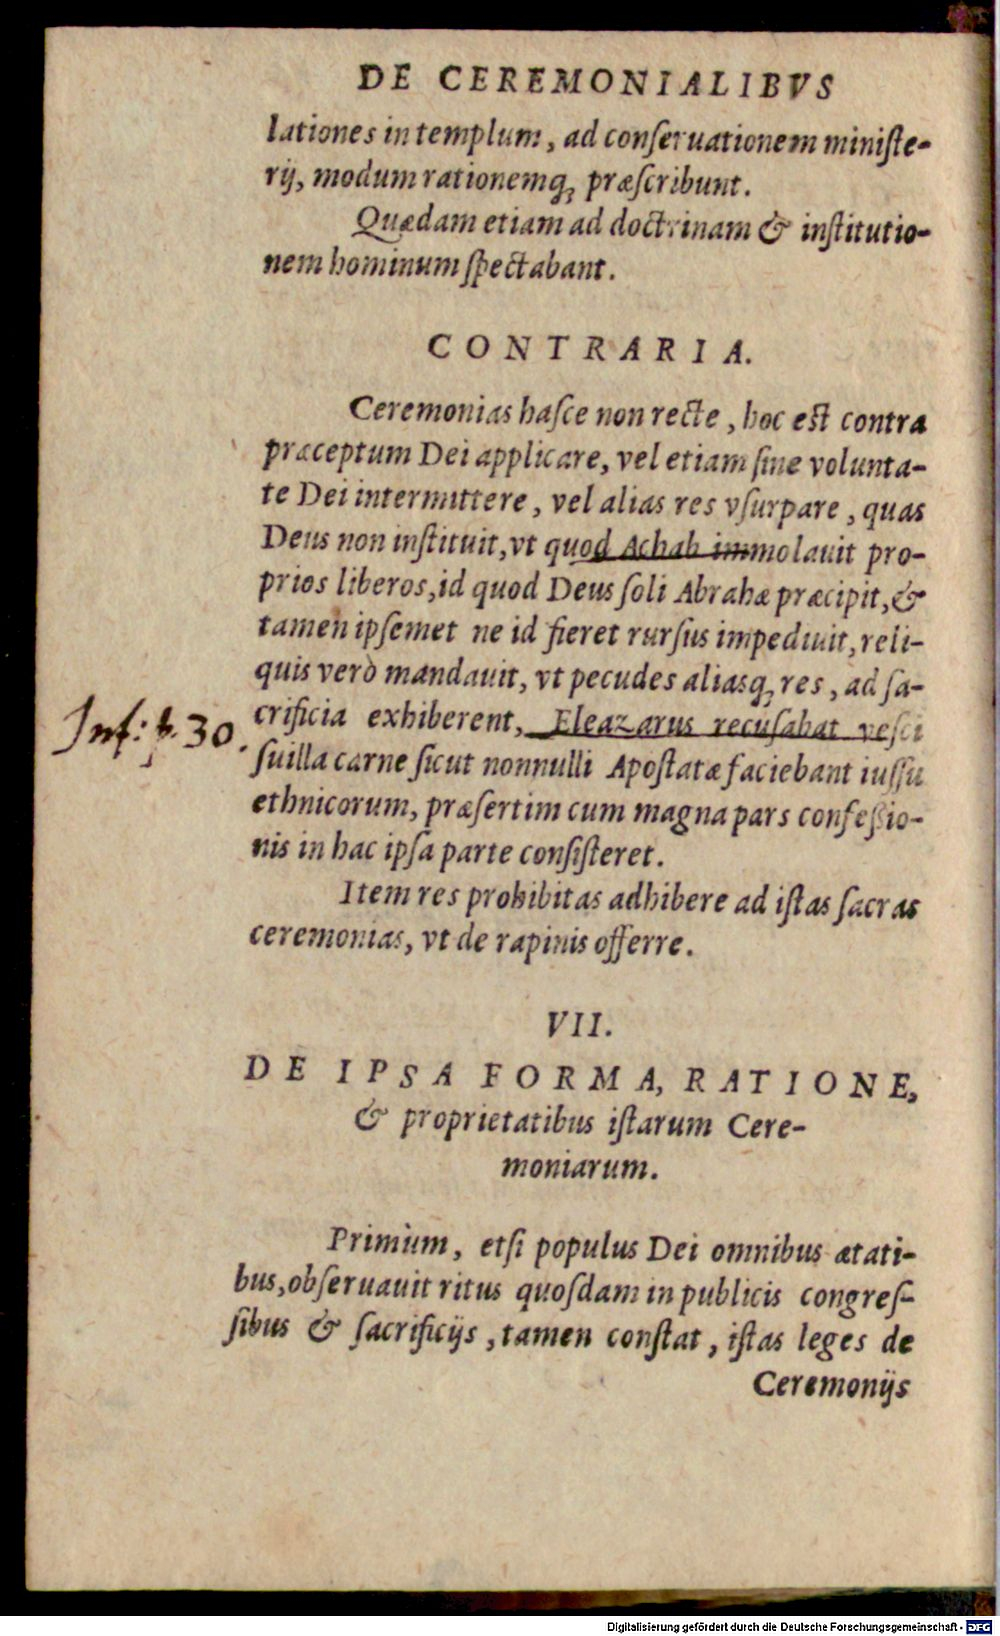 DE CEREMONIALIBVS
lationes in templum, ad conſeruationem miniſte-
rij, modum rationemq́ꝫ præſcribunt.
Quædam etiam ad doctrinam & inſtitutio-
nem hominum ſpectabant.
CONTRARIA.
Ceremonias haſce non recte, hoc eſt contra
præceptum Dei applicare, vel etiam ſine volunta-
te Dei intermittere, vel alias res vſurpare, quas
Deus non inſtituit, vt quod Achab immolauit pro-
prios liberos, id quod Deus ſoli Abrahæ præcipit, &
tamen ipſemet ne id fieret rurſus impediuit, reli-
quis verò mandauit, vt pecudes aliasq́ꝫ res, ad ſa-
crificia exhiberent, Eleazarus recuſabat veſci
Inf: p. 30.
ſuilla carne ſicut nonnulli Apoſtatæ faciebant iuſſu
ethnicorum, præſertim cum magna pars confeßio-
nis in hac ipſa parte conſiſteret.
Item res prohibitas adhibere ad iſtas ſacras
ceremonias, vt de rapinis offerre.
VII.
DE IPSA FORMA, RATIONE,
& proprietatibus iſtarum Cere-
moniarum.
Primùm, etſi populus Dei omnibus ætati-
bus, obſeruauit ritus quoſdam in publicis congreſ-
ſibus & ſacrificijs, tamen conſtat, iſtas leges de
Ceremonijs
Digitalisierung gefördert durch die Deutsche Forschungsgemeinschaft - DFG